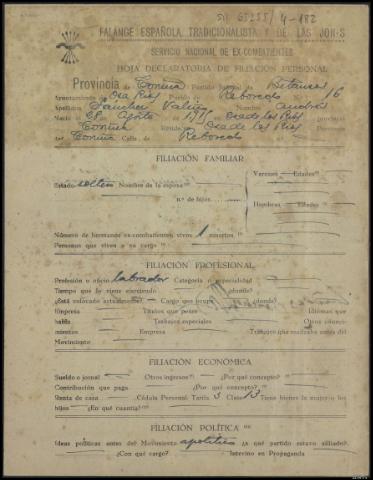 FALANGE ESPAÑOLA TRADICIONALISTA Y DE LAS JON-S
SERVICIO NACIONAL DE EX-COMBATIENTES
HOJA DECLARATORIA DE FILIACION PERSONAL
Provincia de Coruña Partido Judicial de Betanzos
Ayuntamiento de Oza Rios Partido de Reboredo 16
Apellidos Sanchez Nombre Andrés
Nació el 28 Agosto de en Oza de los Rios provincia
Coruña Oza de los Rios Provincia
del Coruña Calle de Reboredo
FILIACIÓN FAMILIAR
Estado soltero Nombre de la esposa
Varones Edades
n.º de hijos
Hembras Edades
Número de hermanos ex-combatientes vivos 1 muertos
Personas que viven a su cargo
FILIACIÓN PROFESIONAL
Profesión u oficio labrador Categoría o especialidad
Tiempo que lo viene ejerciendo ¿dónde?
¿Está colocado actualmente? Cargo que ocupa ¿dónde?
Empresa Títulos que posee Idiomas que
habla Trabajos especiales Otros conoci-
mientos Empresa Trabajos que realizaba antes del
Movimiento
FILIACIÓN ECONÓMICA
Sueldo o jornal Otros ingresos ¿Por qué concepto?
Contribución que paga ¿Por qué concepto?
Renta de casa Cédula Personal Tarifa 3 Clase 13 Tiene bienes la mujer o los
hijos ¿En qué cuantía?
FILIACIÓN POLÍTICA
Ideas políticas antes del Movimiento apolítico ¿A qué partido estuvo afiliado?
¿Con qué cargo? Intervino en Propaganda